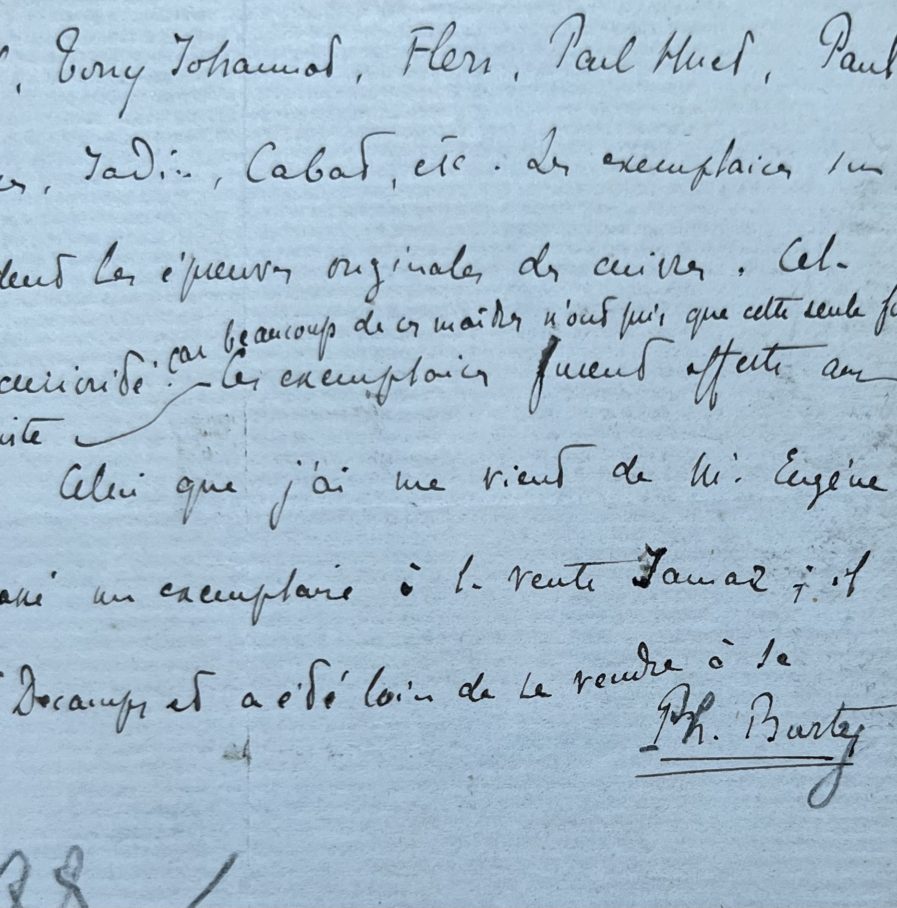 , Tony Johannot, Flers, Paul Huet, Paul
, Jadin, Cabat, etc. Les exemplaires sur
les épreuves originales des cuivres. Cet
car beaucoup de ces maîtres n'ont que cette seule
curiosité. Ces exemplaires furent offerts aux
Celui que j'ai me vient de M. Eugène
un exemplaire à la vente ; il
Decamps et a été loin de se vendre à sa
Ph. Burty
88 /